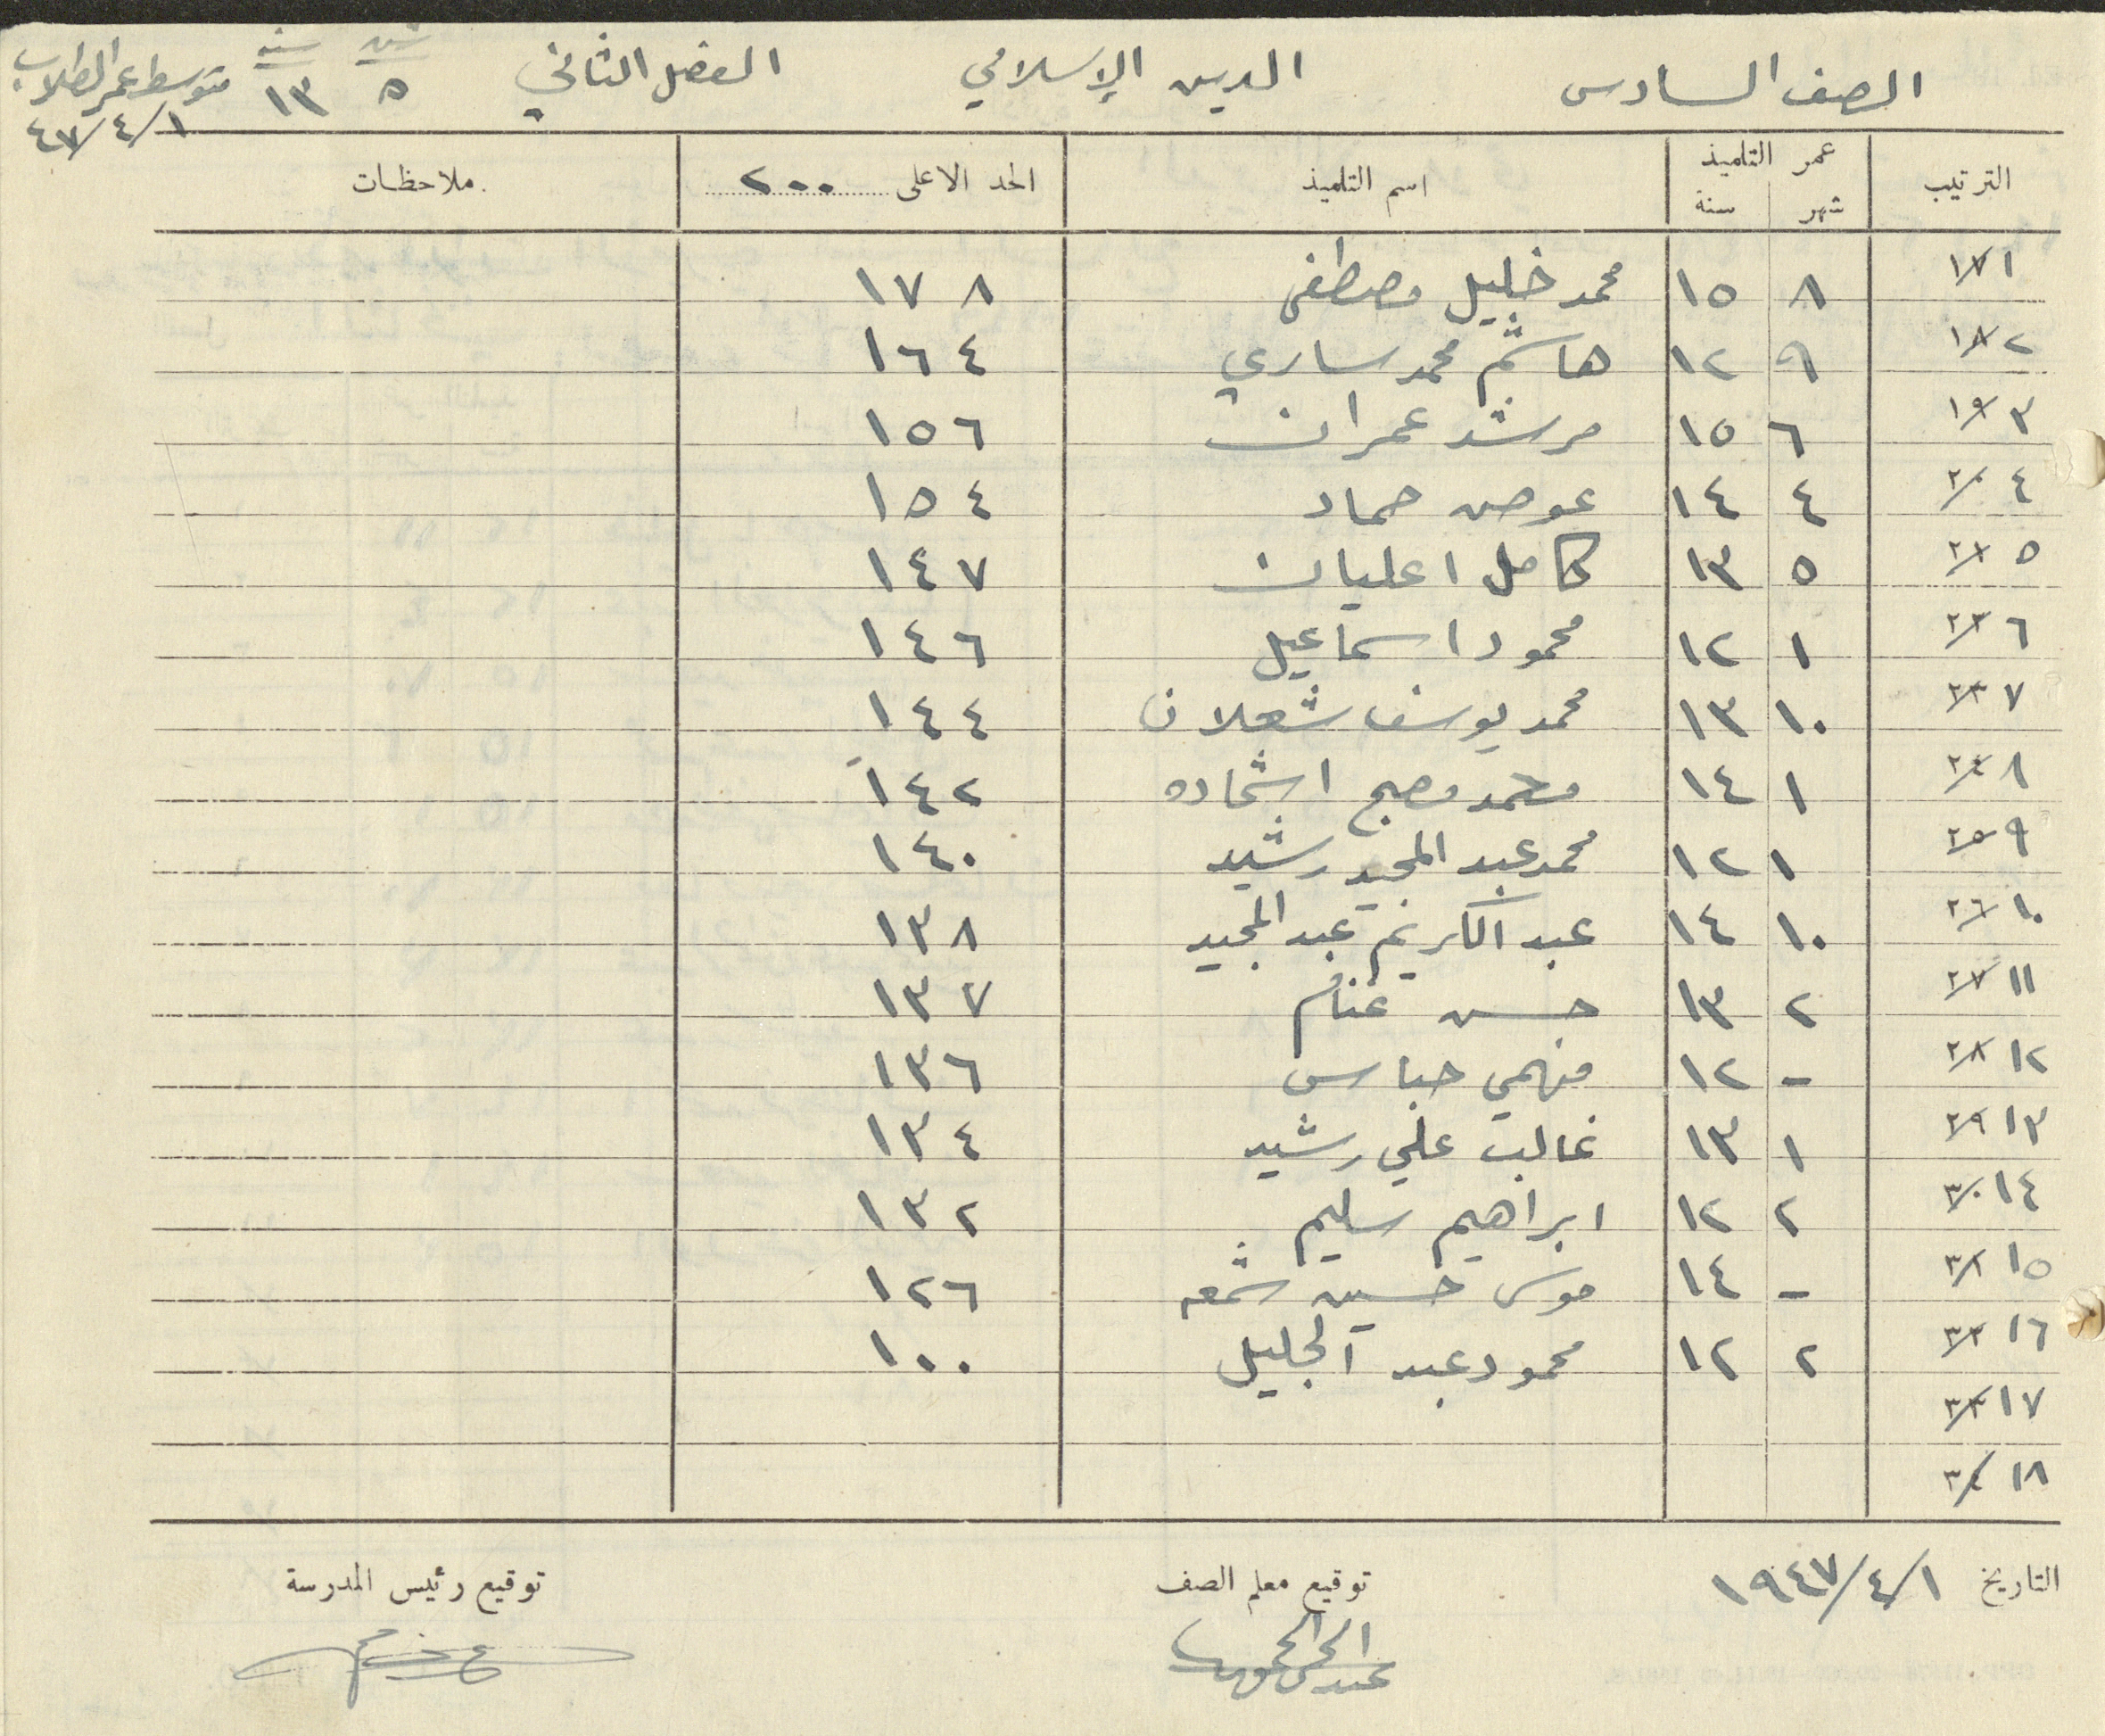 الصف السادس الدين الإسلامي الفصل الثاني شهر ٥ سنة ١٣ متوسط عمر الطلاب
٤٧/٤/١
الترتيب عمر التلميذ شهر سنة اسم التلميذ الحد الاعلى ٢٠٠ ملاحظات
١ ١٧ ٨ ١٥ محمد خليل مصطفى ١٧٨
٢ ١٨ ٩ ١٢ هاشم محمد ساري ١٦٤
٣ ١٩ ٦ ١٥ مرشد عمران ١٥٦
٤ ٢٠ ٤ ١٤ عوض حماد ١٥٤
٥ ٢١ ٥ ١٣ كامل اعليان ١٤٧
٦ ٢٢ ١ ١٢ محمود اسماعيل ١٤٦
٧ ٢٣ ١٠ ١٣ محمد يوسف شعلان ١٤٤
٨ ٢٤ ١ ١٤ محمد مصبح اشحاده ١٤٢
٩ ٢٥ ١ ١٢ محمد عبد المجيد رشيد ١٤٠
١٠ ٢٦ ١٠ ١٤ عبد الكريم عبد المجيد ١٣٨
١١ ٢٧ ٢ ١٣ حسن غنام ١٣٧
١٢ ٢٨ - ١٢ فهمي حباس ١٣٦
١٣ ٢٩ ١ ١٣ غالب علي رشيد ١٣٤
١٤ ٣٠ ٢ ١٢ ابراهيم سليم ١٣٢
١٥ ٣١ - ١٤ موسى حسين شمعه ١٢٦
١٦ ٣٢ ٢ ١٢ محمود عبد الجليل ١٠٠
١٧ ٣٣
١٨ ٣٤
التاريخ ١٩٤٧/٤/١ توقيع معلم الصف توقيع رئيس المدرسة